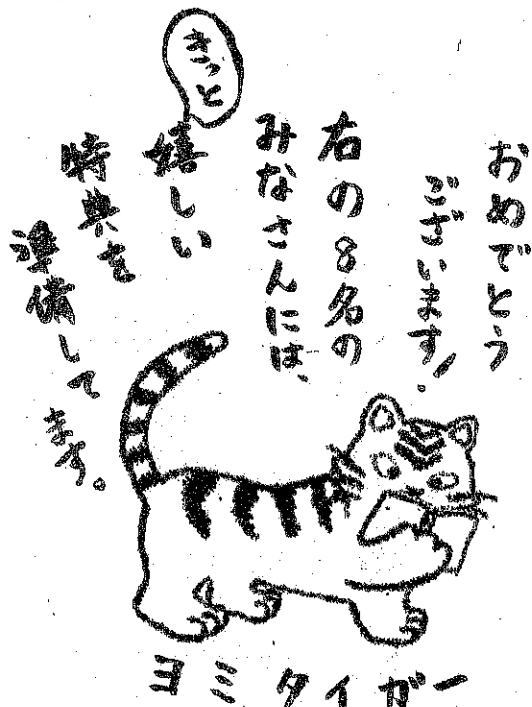 おめでとう
ございます!
右の8名の
みなさんには、
きっと
嬉しい
特典を
準備してます。
ヨミタイガー